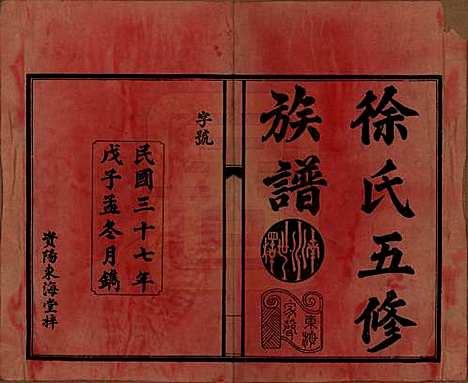 徐氏五修
族譜
字號
民國三十七年
戊子孟冬月鐫
東海堂梓